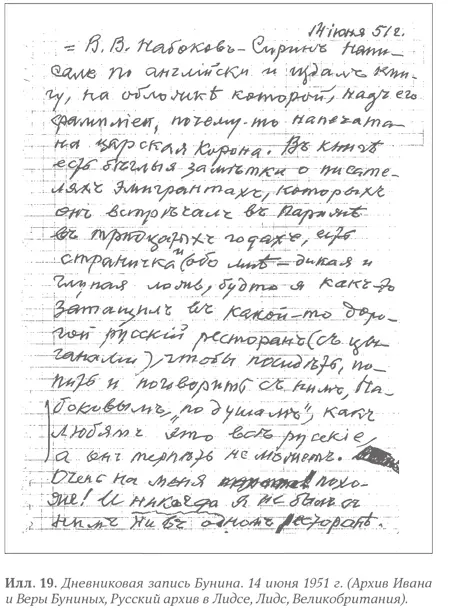 14 iюня 51 г.
= В. В. Набоковъ-Сиринъ напи-
салъ по англiйски и издалъ кни-
гу, на обложкѣ которой, надъ его
фамилiей, почему-то напечата-
на царская корона. Въ книгѣ
есть бѣглыя замѣтки о писате-
ляхъ эмигрантахъ, которыхъ
онъ встрѣчалъ въ Парижѣ
въ тридцатыхъ годахъ, есть
страничка и обо мнѣ – дикая и
глупая ложь, будто я какъ-то
затащилъ въ какой-то доро-
гой русскiй ресторанъ (съ цы-
ганами), чтобы посидѣть, по-
пить и поговорить съ нимъ, На-
боковымъ, „по душамъ", какъ
любятъ это всѣ русскiе,
а онъ терпѣть не можетъ.
Очень на меня похо-
же! И никогда я не былъ съ
нимъ ни въ одномъ ресторанѣ.
Илл. 19. Дневниковая запись Бунина. 14 июня 1951 г. (Архив Ивана
и Веры Буниных, Русский архив в Лидсе, Лидс, Великобритания).